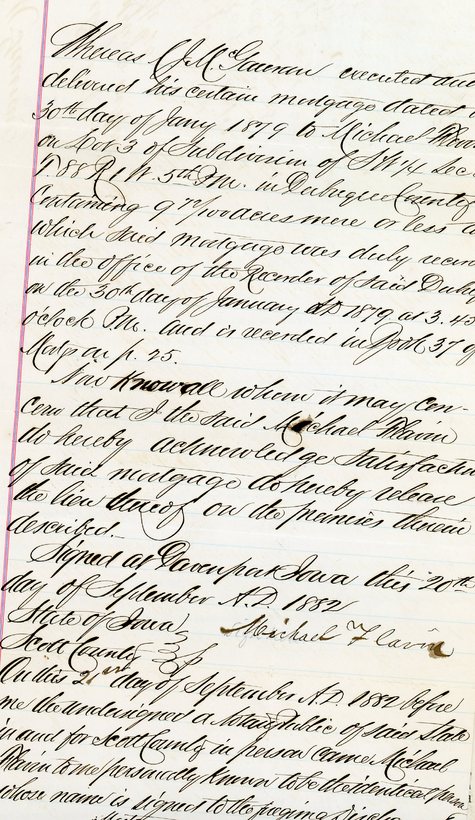 Whereas J. McGauran executed and
delivered his certain mortgage dated
30th day of Jany 1879 to Michael Flavin
on Lot 3 of Subdivision of SW 1/4 Sec
T. 88 R 1 W. 5th P.M. in Dubuque County
Containing 9 acres more or less
which said mortgage was duly recor
in the office of the Recorder of said Dubu
on the 30th day of January AD 1879 at 3.45
oclock P.M. and is recorded in Book 37 of
Mortgs on p. 25.
Now know all whom it may con-
cern that I the said Michael Flavin
do hereby acknowledge satisfactio
of said mortgage do hereby release
the lien thereof on the premises therein
described.
Signed at Davenport Iowa this 20th
day of September A.D. 1882
State of Iowa Michael Flavin
Scott County
On this day of September A.D. 1882 before
me the undersigned a Notary Public of said State
in and for Scott County in person came Michael
Flavin to me personally known to be the identical person
whose name is signed to the